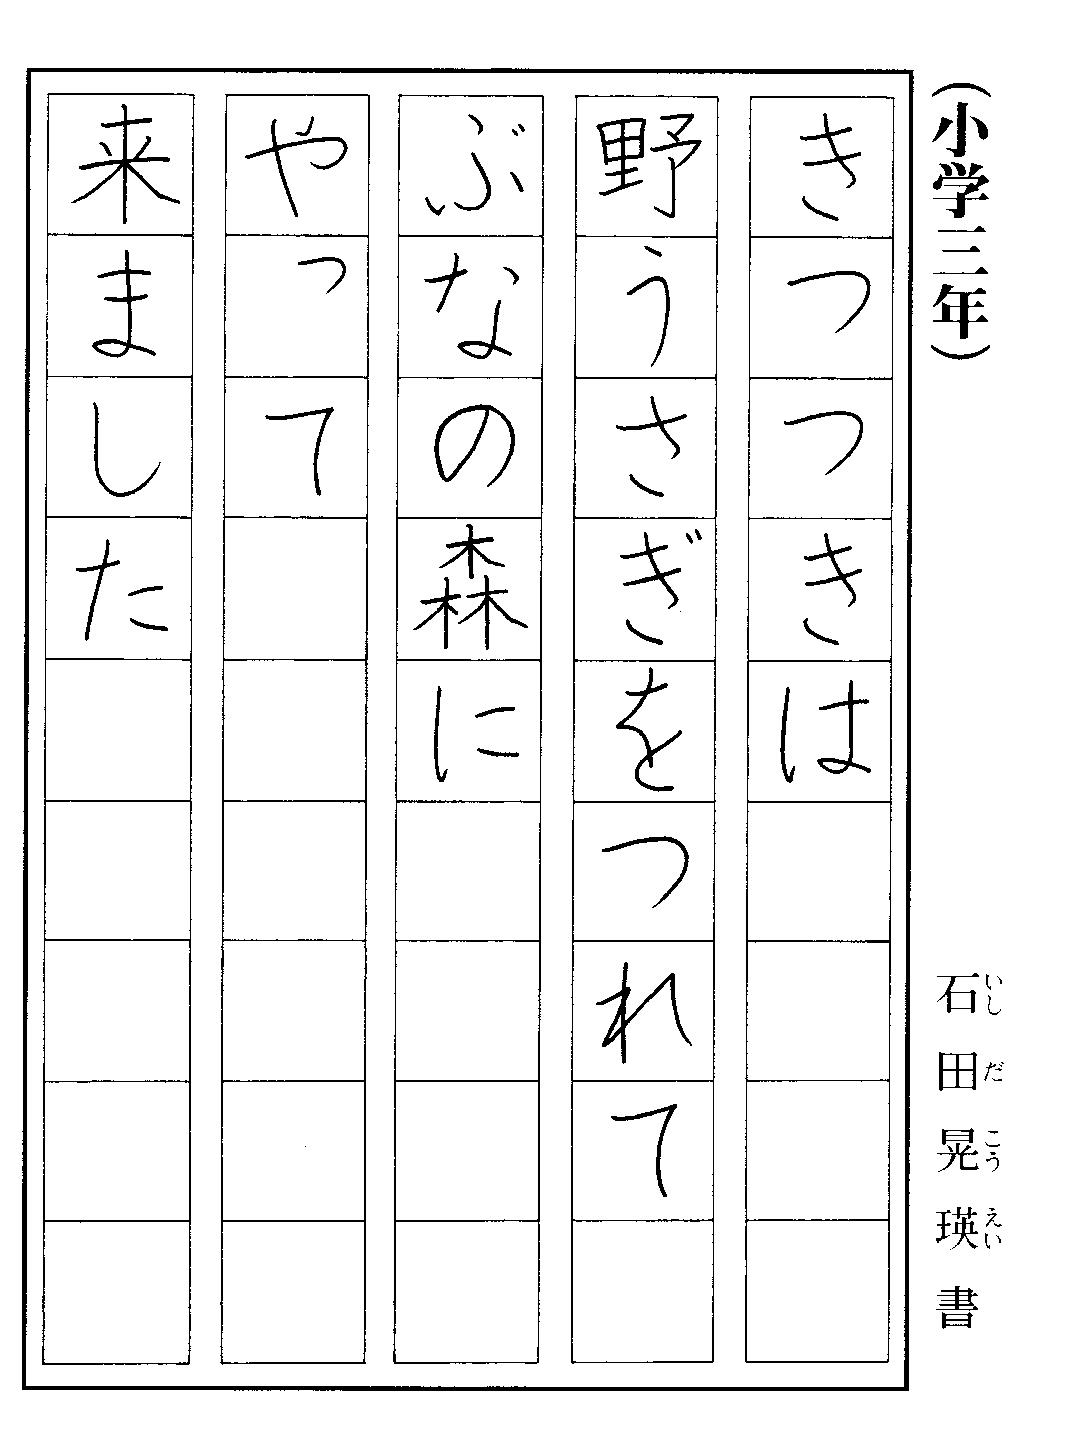 （小学三年）
石田晃瑛書
いしだこうえい
きつつきは
野うさぎをつれて
ぶなの森に
やって
来ました